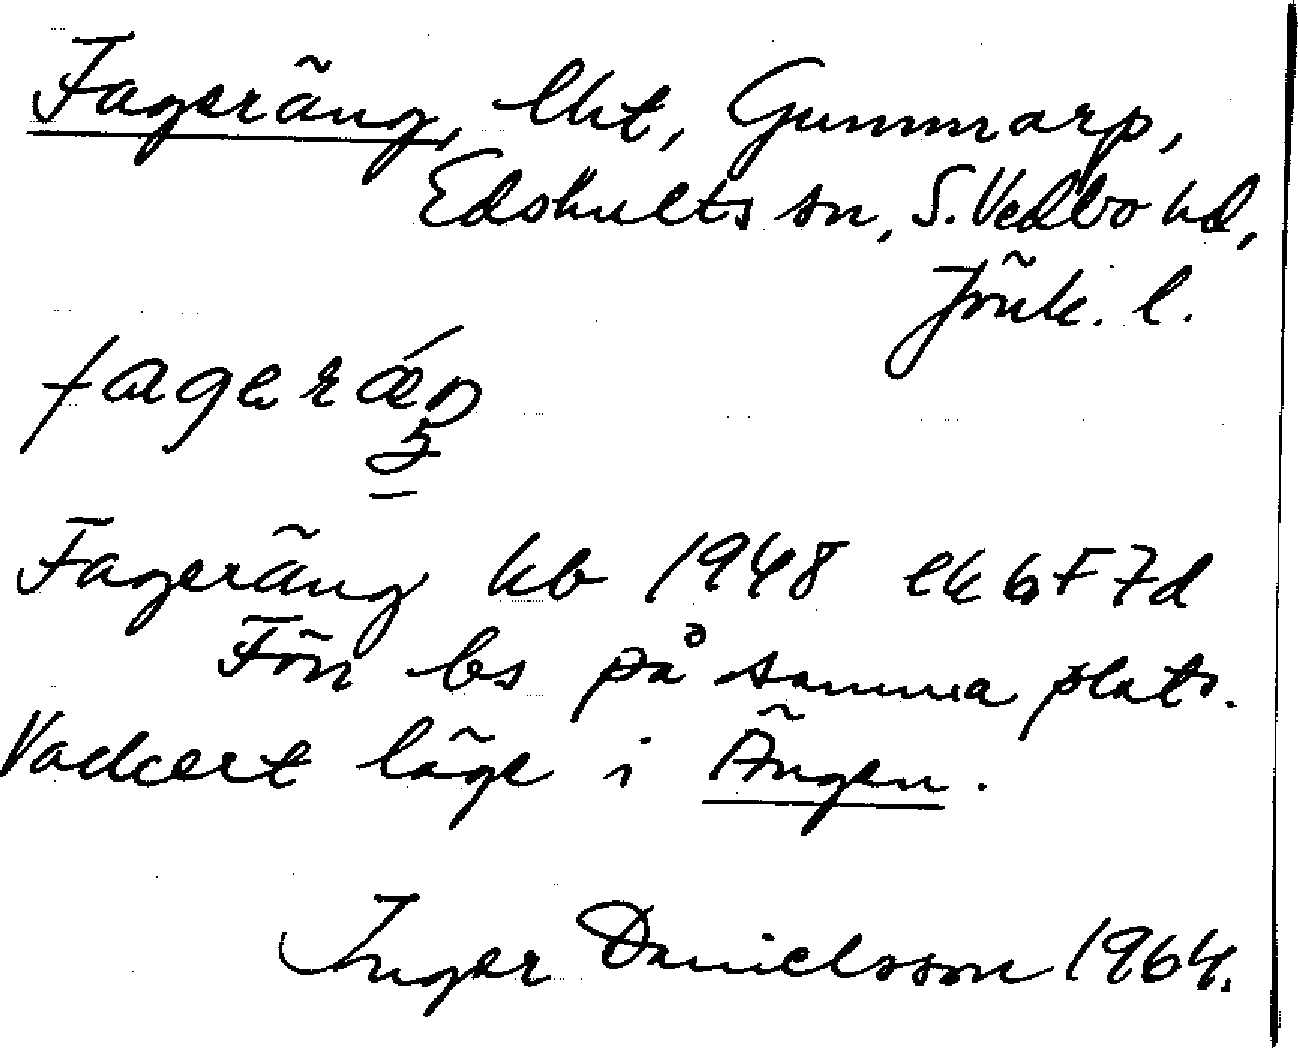 Fageräng, lht, Gummarp,
Edshults sn, S. Vedbo hd,
Jönk. l.
fageræ´ŋ
Fageräng kb 1948 ek bl 6F7d
Förr bs på samma plats.
Vackert läge i Ängen.
Inger Danielsson 1964.